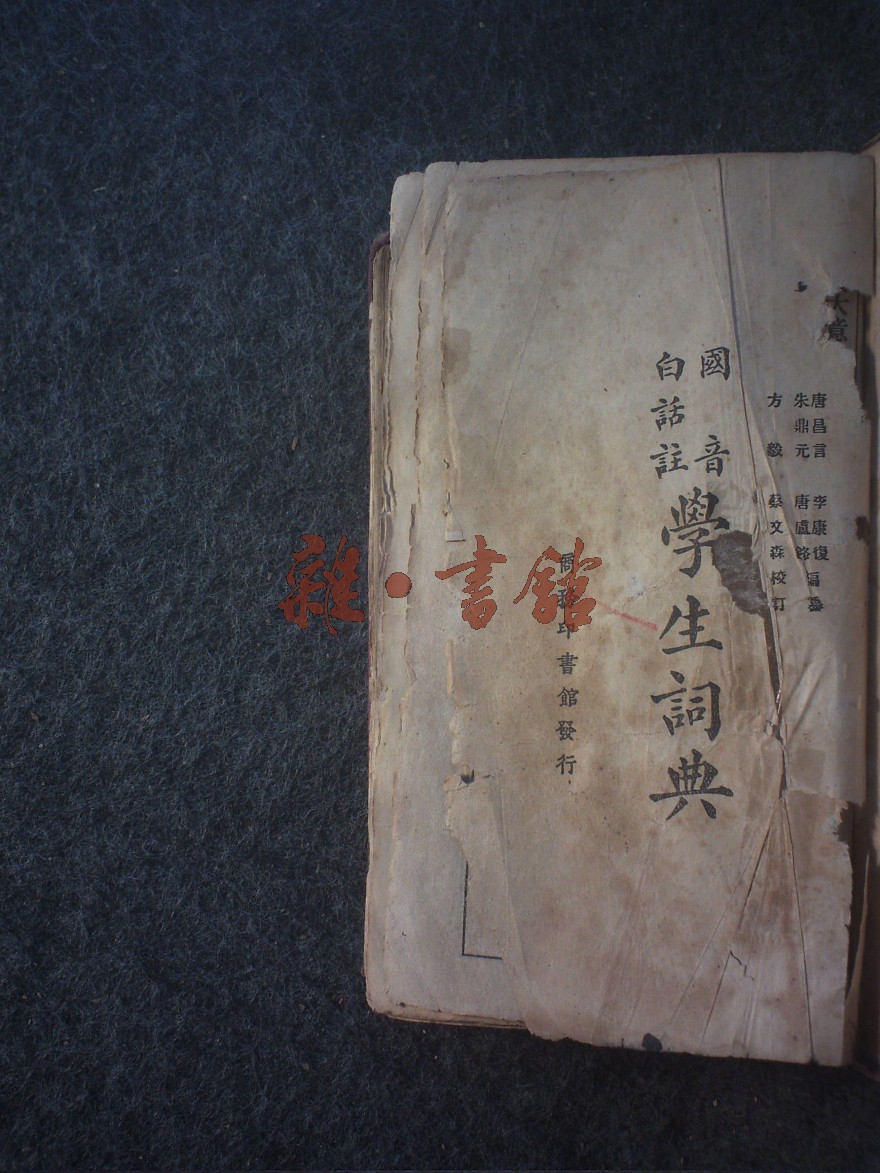 唐昌言 李康復 編纂
朱鼎元 唐盧鋒
方毅 蔡文森 校訂
國音
白話註
學生詞典
商務印書館發行
雜·書館